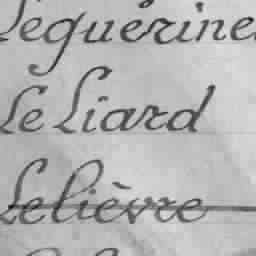 Leguérine
Le Liard
Lelièvre